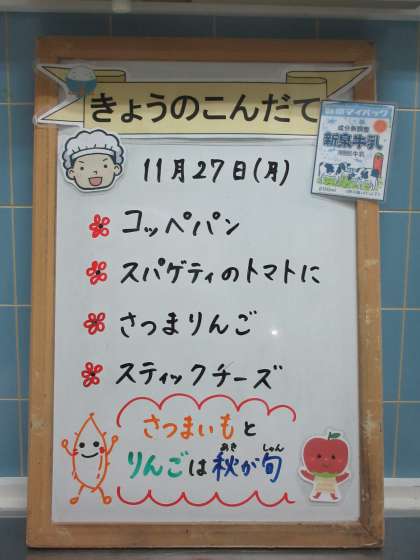 きょうのこんだて
11月27日(月)
コッペパン
スパゲティのトマトに
さつまりんご
スティックチーズ
さつまいもと
りんごは秋が旬
あき しゅん
新泉牛乳